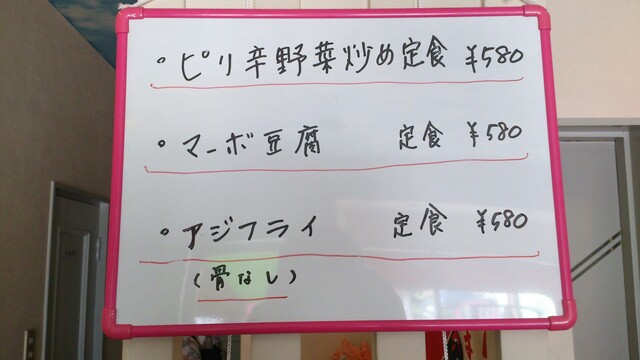 ・ピリ辛野菜炒め定食 ¥580
・マーボ豆腐 定食 ¥580
・アジフライ 定食 ¥580
(骨なし)